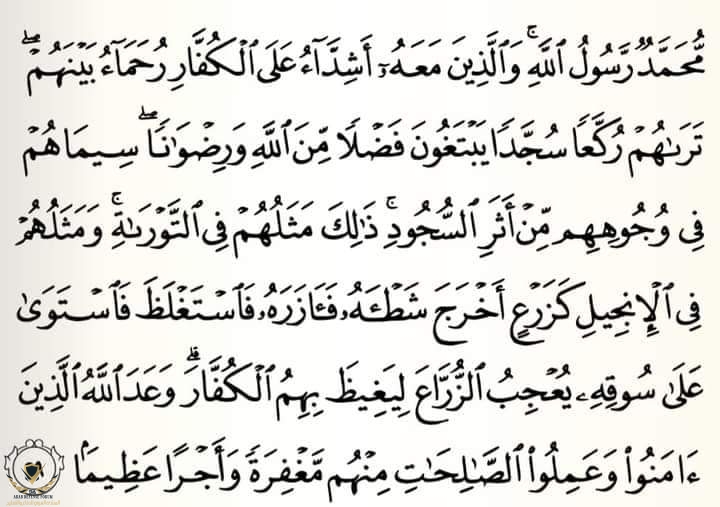 مُّحَمَّدٌ رَّسُولُ ٱللَّهِۚ وَٱلَّذِينَ مَعَهُۥٓ أَشِدَّآءُ عَلَى ٱلۡكُفَّارِ رُحَمَآءُ بَيۡنَهُمۡۖ
تَرَىٰهُمۡ رُكَّعٗا سُجَّدٗا يَبۡتَغُونَ فَضۡلٗا مِّنَ ٱللَّهِ وَرِضۡوَٰنٗاۖ سِيمَاهُمۡ
فِي وُجُوهِهِم مِّنۡ أَثَرِ ٱلسُّجُودِۚ ذَٰلِكَ مَثَلُهُمۡ فِي ٱلتَّوۡرَىٰةِۚ وَمَثَلُهُمۡ
فِي ٱلۡإِنجِيلِ كَزَرۡعٍ أَخۡرَجَ شَطۡـَٔهُۥ فَـَٔازَرَهُۥ فَٱسۡتَغۡلَظَ فَٱسۡتَوَىٰ
عَلَىٰ سُوقِهِۦ يُعۡجِبُ ٱلزُّرَّاعَ لِيَغِيظَ بِهِمُ ٱلۡكُفَّارَۗ وَعَدَ ٱللَّهُ ٱلَّذِينَ
ءَامَنُواْ وَعَمِلُواْ ٱلصَّٰلِحَٰتِ مِنۡهُم مَّغۡفِرَةٗ وَأَجۡرًا عَظِيمَۢا
ARAB DEFENSE FORUM